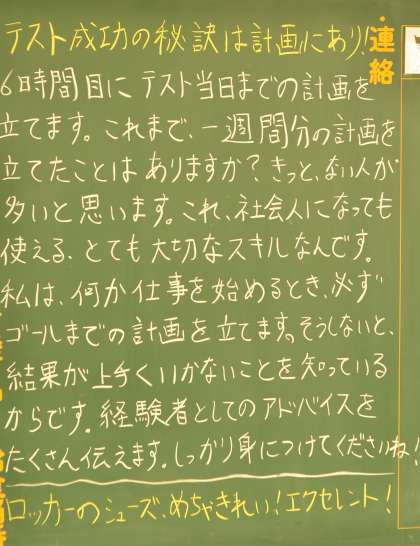 テスト成功の秘訣は計画にあり!
6時間目にテスト当日までの計画を
立てます。これまで、一週間分の計画を
立てたことはありますか?きっと、ない人が
多いと思います。これ、社会人になっても
使える、とても大切なスキルなんです。
私は、何か仕事を始めるとき、必ず
ゴールまでの計画を立てます。そうしないと、
結果が上手くいかないことを知っている
からです。経験者としてのアドバイスを
たくさん伝えます。しっかり身につけてくださいね!
ロッカーのシューズ、めちゃきれい!エクセレント!
連絡